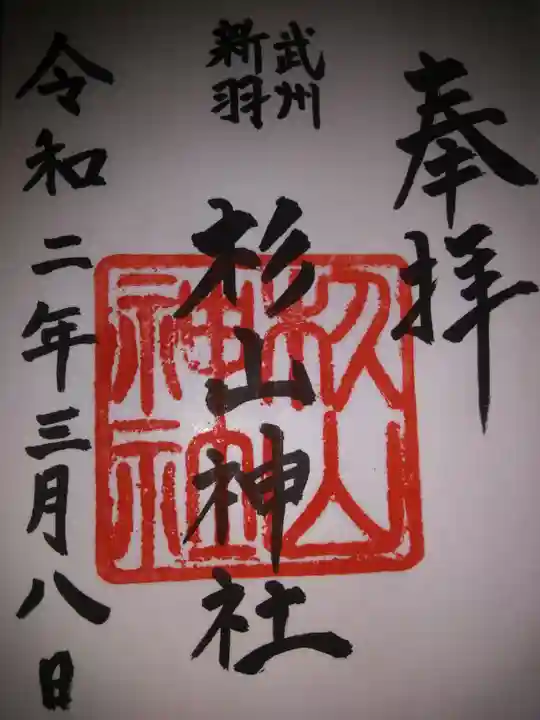 奉拝
武州
新羽
杉山神社
令和二年三月八日
杉山
神社